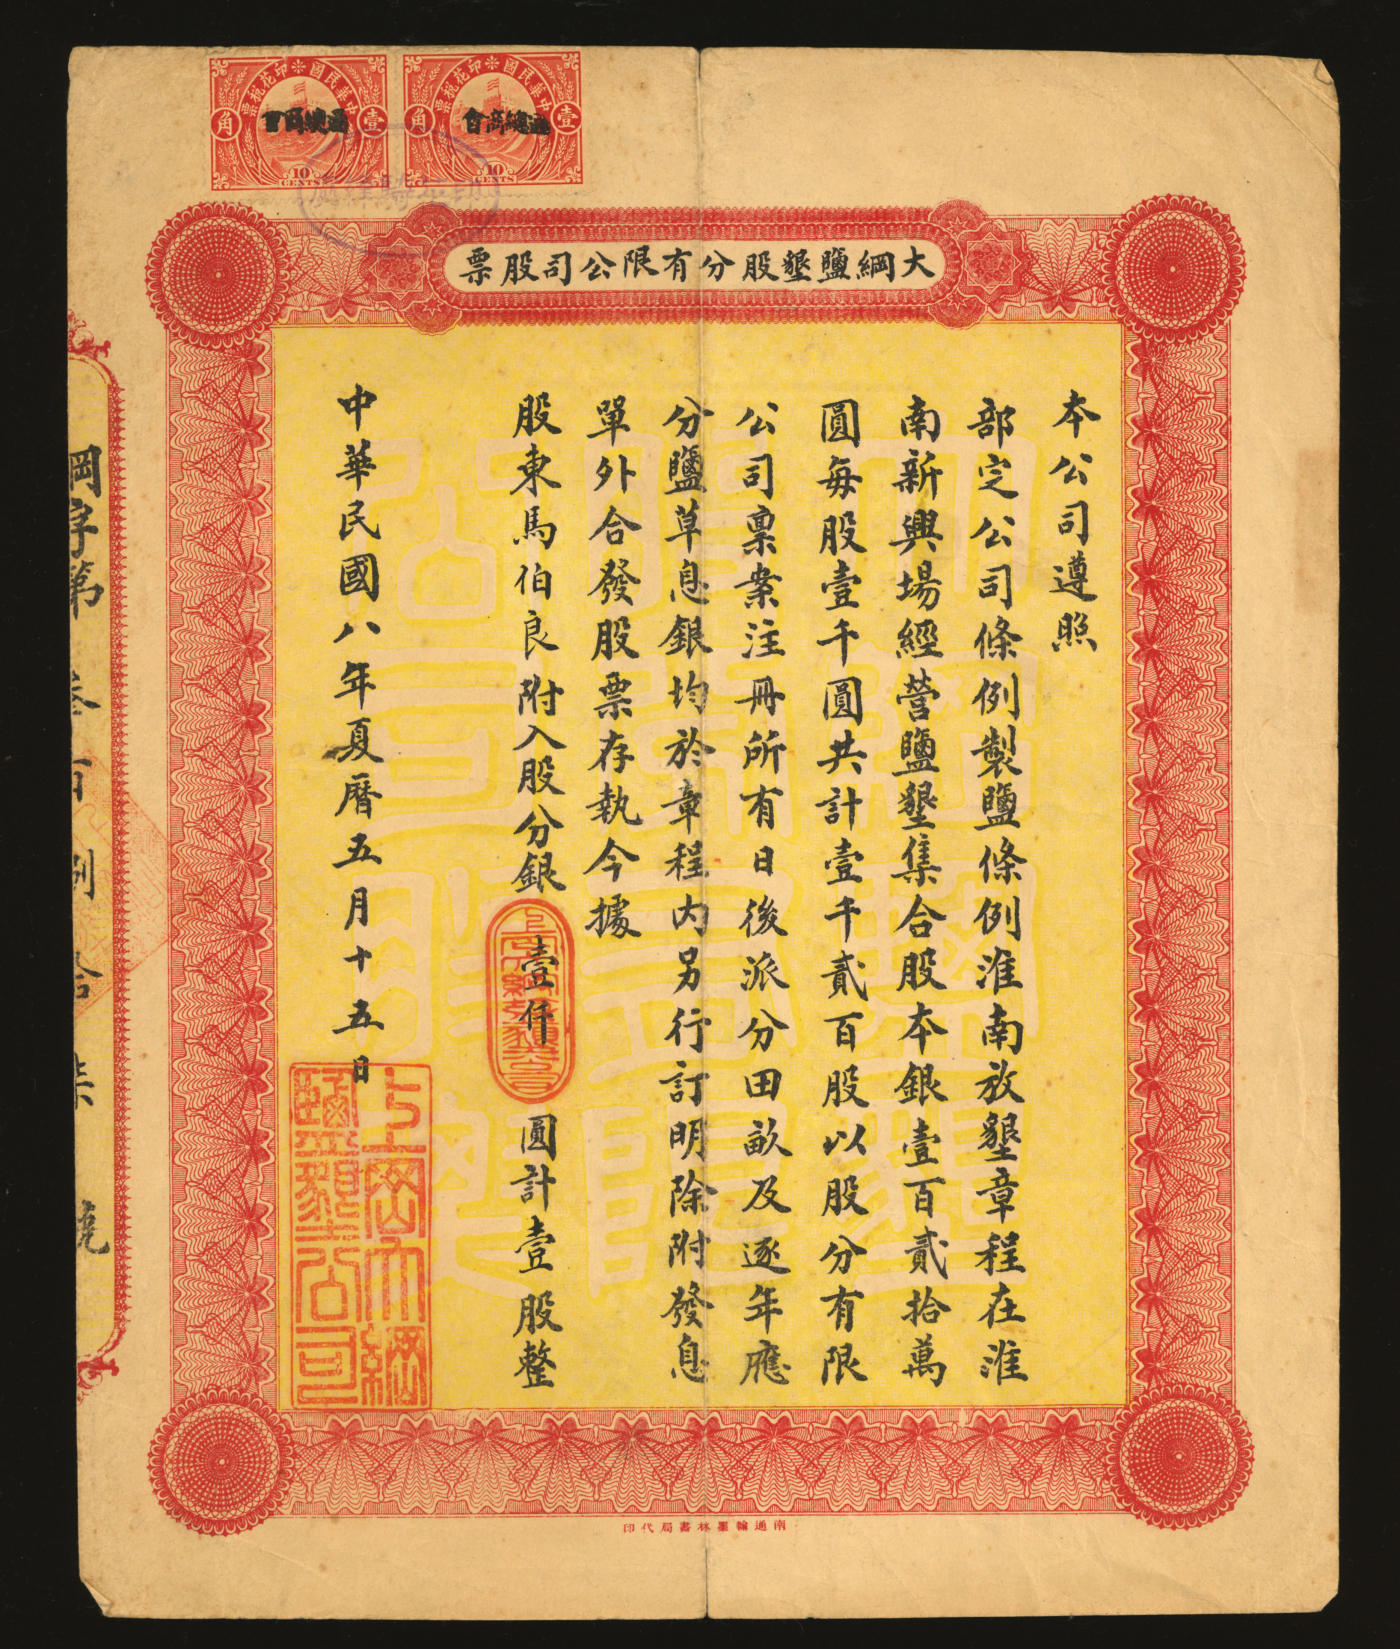 中華民國印花稅票
壹角
通總商會
10
CENTS
中華民國印花稅票
壹角
通總商會
10
CENTS
大綱鹽墾股分有限公司股票
本公司遵照
部定公司條例製鹽條例淮南放墾章程在淮
南新興場經營鹽墾集合股本銀壹百貳拾萬
圓每股壹千圓共計壹千貳百股以股分有限
公司稟案注冊所有日後派分田畝及逐年應
分鹽草息銀均於章程內另行訂明除附發息
單外合發股票存執今據
股東馬伯良附入股分銀壹仟圓計壹股整
中華民國八年夏曆五月十五日
上岡大綱
鹽墾公司
綱字第叁百捌拾柒號
南通翰墨林書局代印